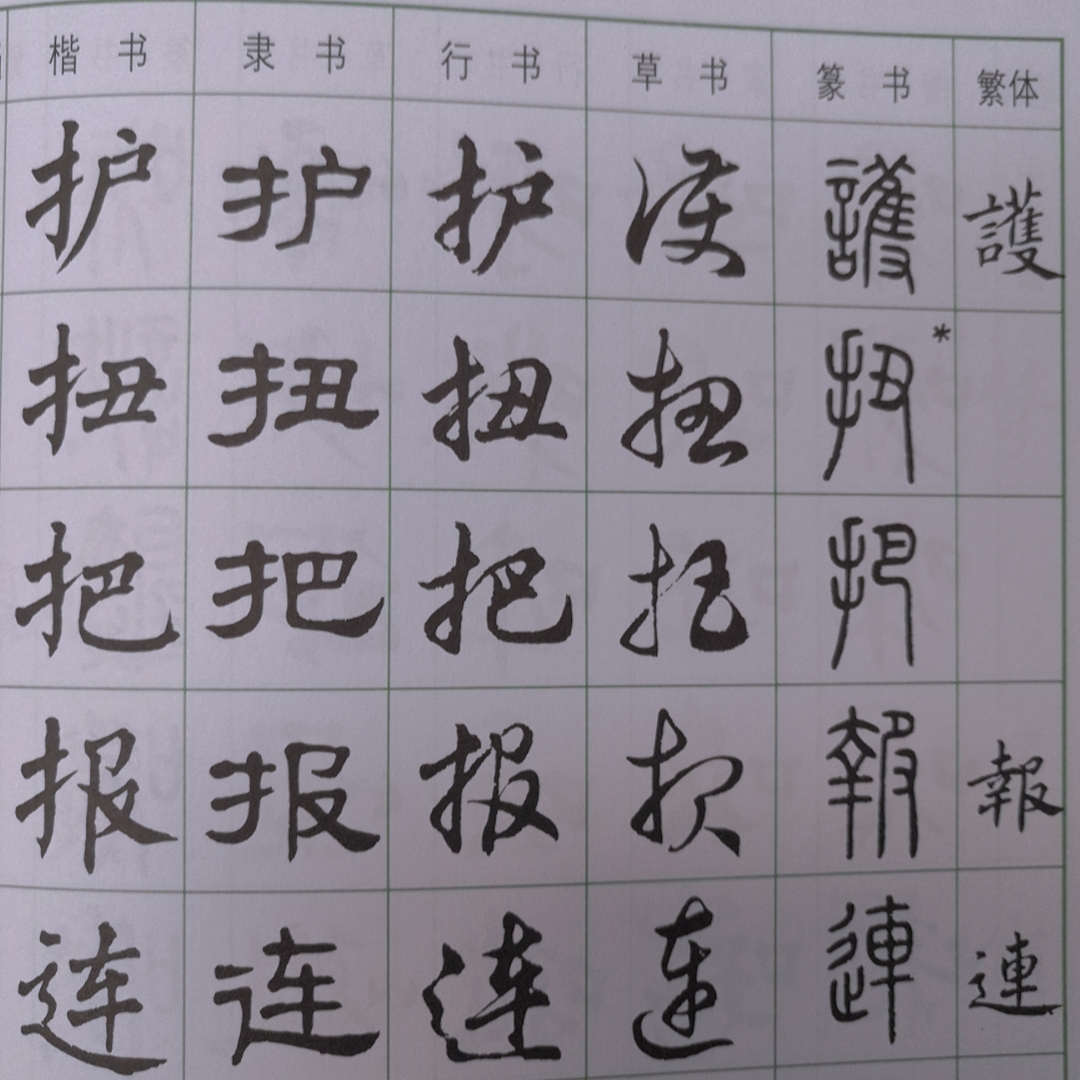 楷书 隶书 行书 草书 篆书 繁体
护 护 护 護 護 護
扭 扭 扭 扭 扭*
把 把 把 把 把
报 报 报 报 報 報
连 连 連 連 連 連